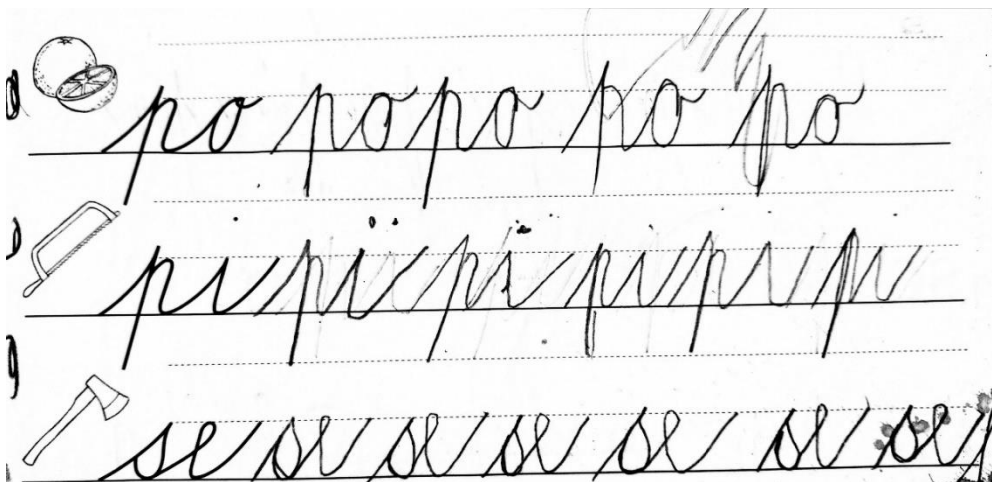 po po po po po
pi pi pi pi pi pi
se se se se se se se